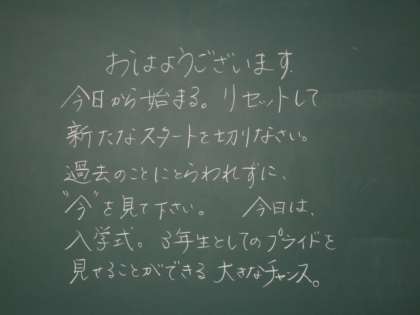 おはようございます.
今日から始まる。リセットして
新たなスタートを切りなさい。
過去のことにとらわれずに、
"今"を見て下さい。 今日は、
入学式。3年生としてのプライドを
見せることができる大きなチャンス。